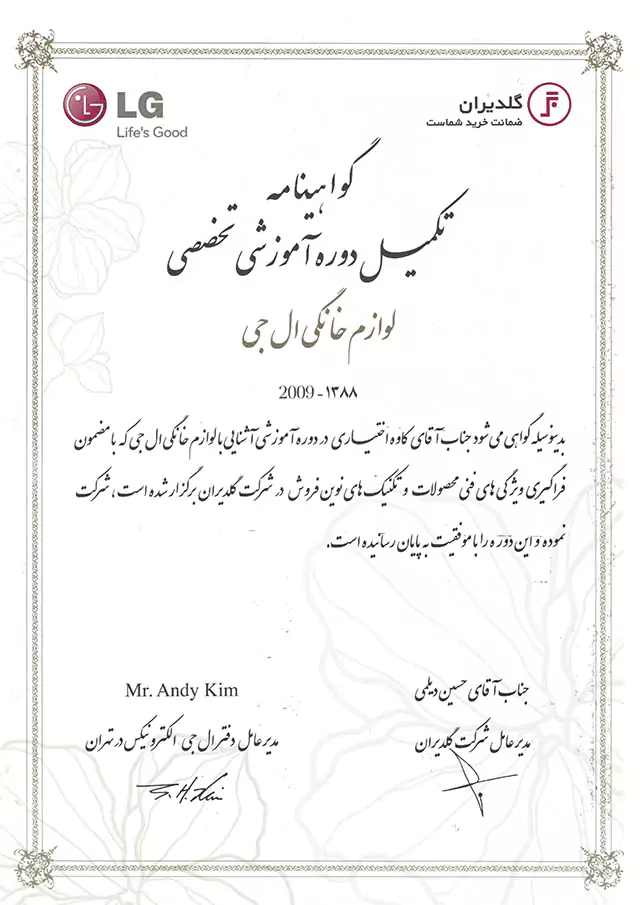 LG
Life's Good
گلدیران
ضمانت خرید شماست
گواهینامه
تکمیل دوره آموزشی تخصصی
لوازم خانگی ال جی
2009 - ۱۳۸۸
بدینوسیله گواهی می شود جناب آقای کاوه اختیاری در دوره آموزشی آشنایی با لوازم خانگی ال جی که با مضمون
فراگیری ویژگی های فنی محصولات و تکنیک های نوین فروش در شرکت گلدیران برگزار شده است، شرکت
نموده و این دوره را با موفقیت به پایان رسانیده است.
جناب آقای حسین دیلمی
مدیر عامل شرکت گلدیران
Mr. Andy Kim
مدیر عامل دفتر ال جی الکترونیکس در تهران